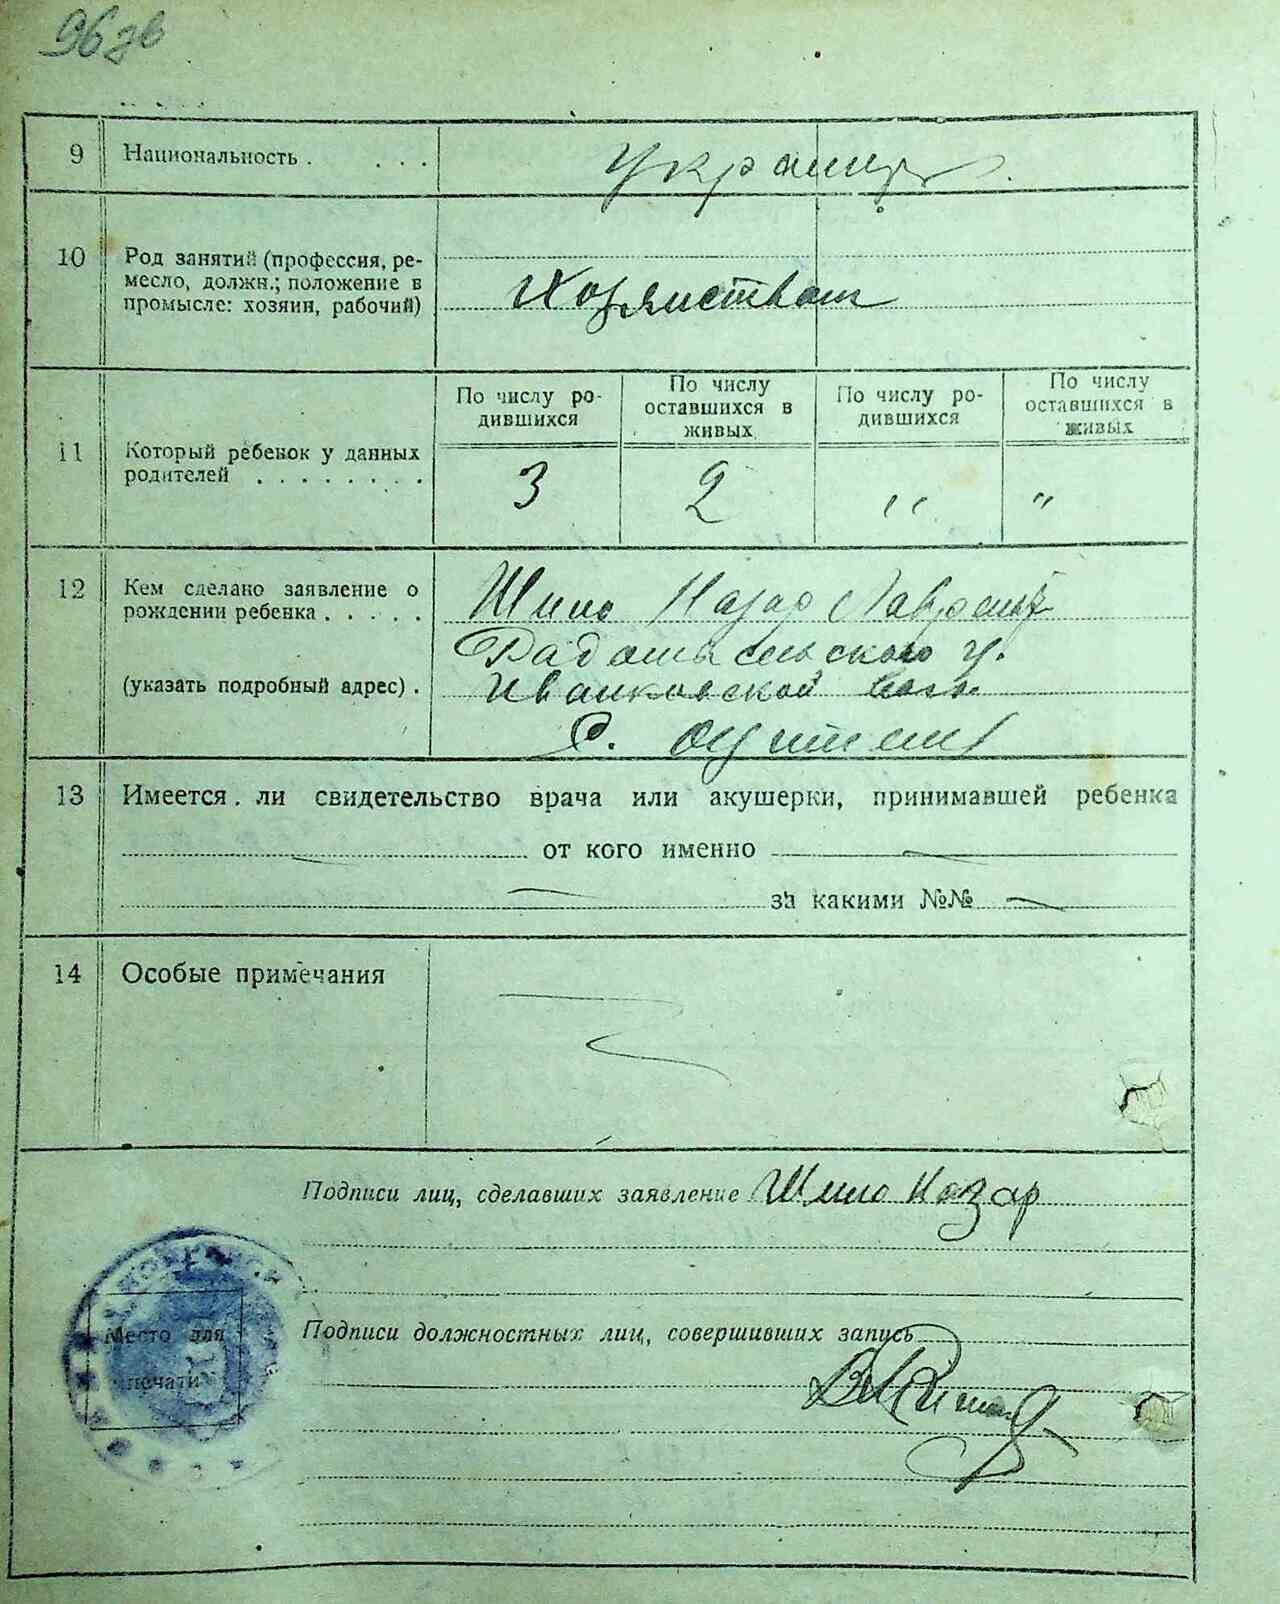 96 зв
9 Национальность . . . . Украинцы
10 Род занятий (профессия, ре-
месло, должн.; положение в
промысле: хозяин, рабочий)
По числу ро-
дившихся
По числу
оставшихся в
живых
По числу ро-
дившихся
По числу
оставшихся в
живых
11 Который ребенок у данных
родителей . . . . . . . . 3 2 " "
12 Кем сделано заявление о
рождении ребенка . . . . . Шило Назар
Радомысльского у.
(указать подробный адрес) . Иванковской вол.
С.
13 Имеется ли свидетельство врача или акушерки, принимавшей ребенка
от кого именно —
за какими №№ —
14 Особые примечания
Подписи лиц, сделавших заявление Шило Назар
Место для
печати
Подписи должностных лиц, совершивших запись